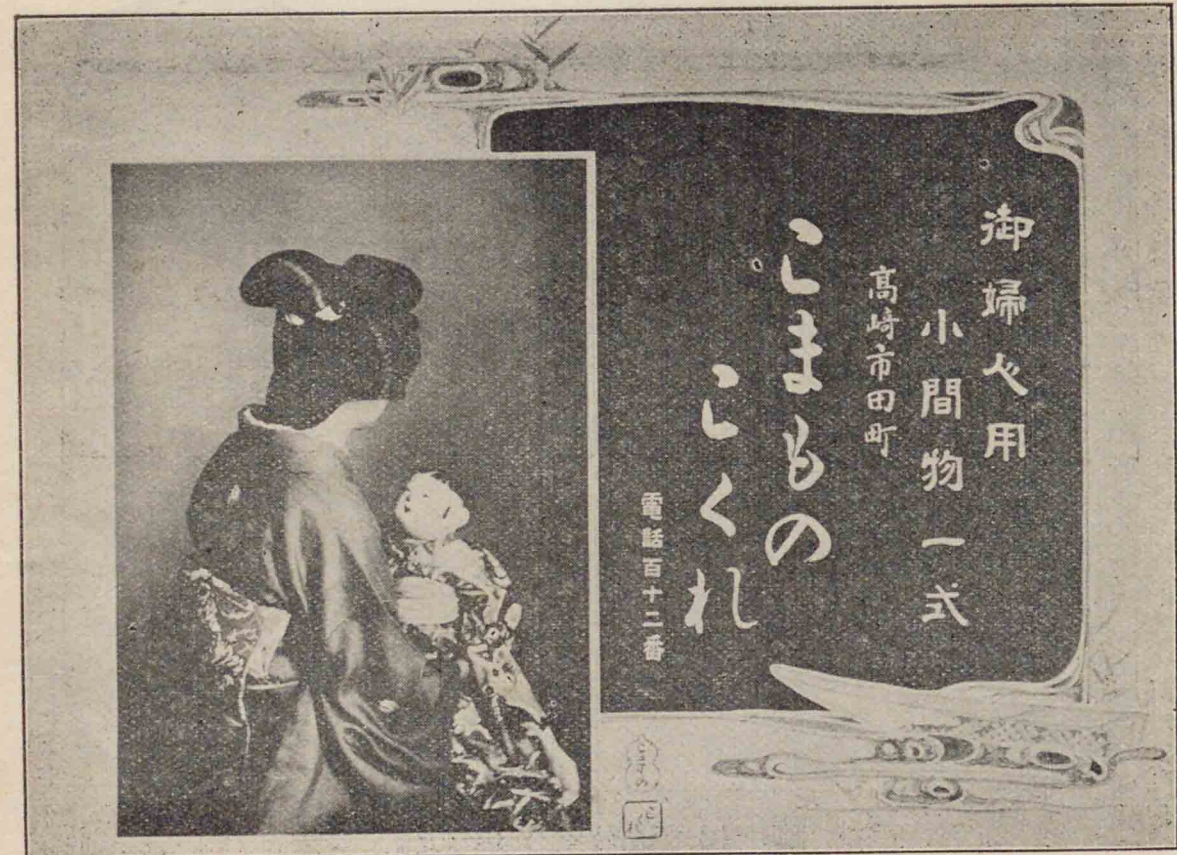 御婦人用
小間物一式
高崎市田町
こまもの
こくれ
電話百十二番